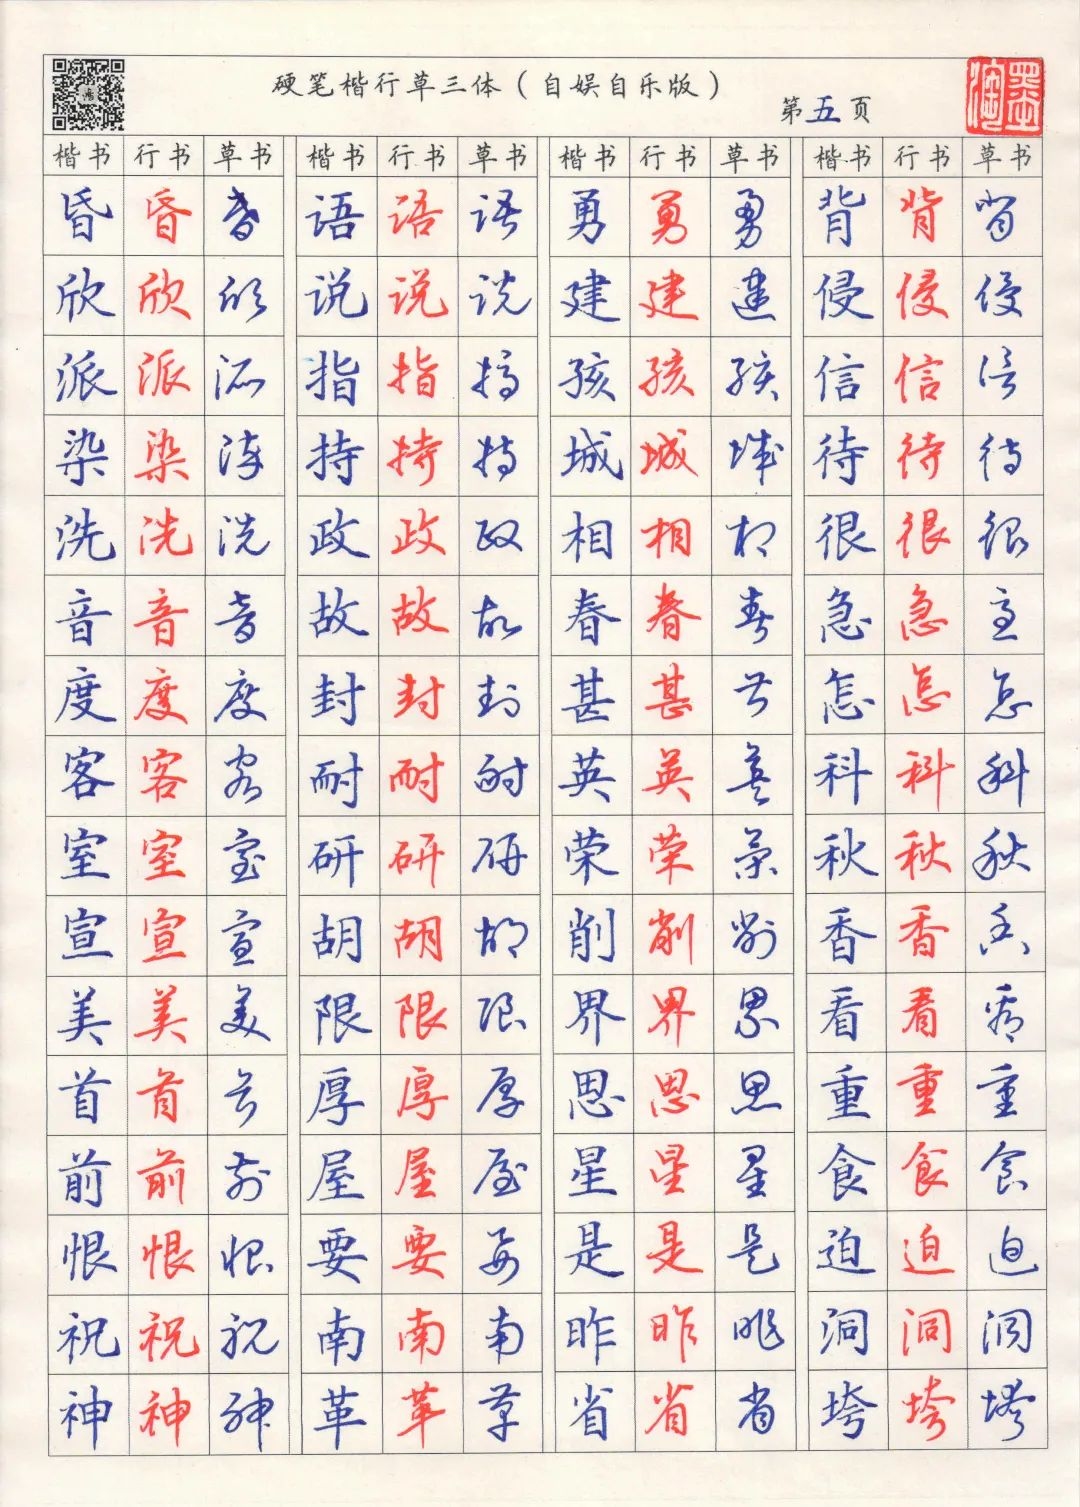 硬笔楷行草三体（自娱自乐版）
第五页
楷书 行书 草书 楷书 行书 草书 楷书 行书 草书 楷书 行书 草书
昏 昏 昏 语 语 语 勇 勇 勇 背 背 背
欣 欣 欣 说 说 说 建 建 建 侵 侵 侵
派 派 派 指 指 指 孩 孩 孩 信 信 信
染 染 染 持 持 持 城 城 城 待 待 待
洗 洗 洗 政 政 政 相 相 相 很 很 很
音 音 音 故 故 故 春 春 春 急 急 急
度 度 度 封 封 封 甚 甚 甚 怎 怎 怎
客 客 客 耐 耐 耐 英 英 英 科 科 科
室 室 室 研 研 研 荣 荣 荣 秋 秋 秋
宣 宣 宣 胡 胡 胡 削 削 削 香 香 香
美 美 美 限 限 限 界 界 界 看 看 看
首 首 首 厚 厚 厚 思 思 思 重 重 重
前 前 前 屋 屋 屋 星 星 星 食 食 食
恨 恨 恨 要 要 要 是 是 是 迫 迫 迫
祝 祝 祝 南 南 南 昨 昨 昨 洞 洞 洞
神 神 神 革 革 革 省 省 省 垮 垮 垮